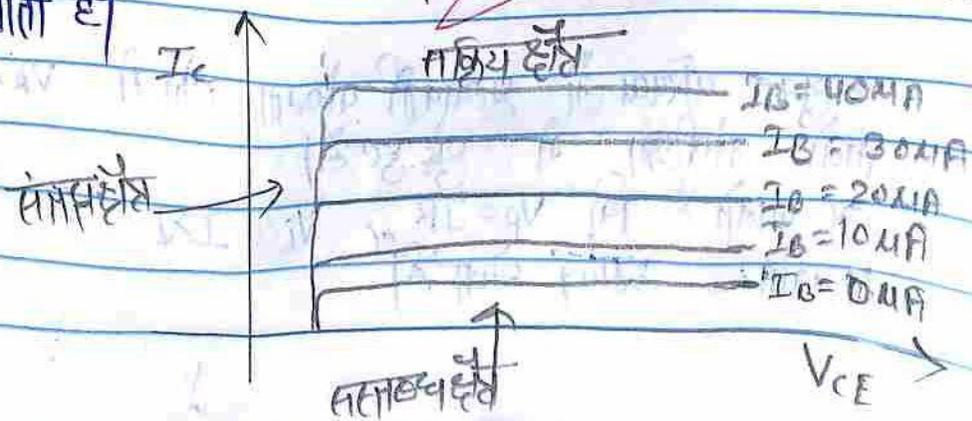 है।
Ic
सक्रिय क्षेत्र
IB = 40 μA
IB = 30 μA
IB = 20 μA
IB = 10 μA
IB = 0 μA
VCE